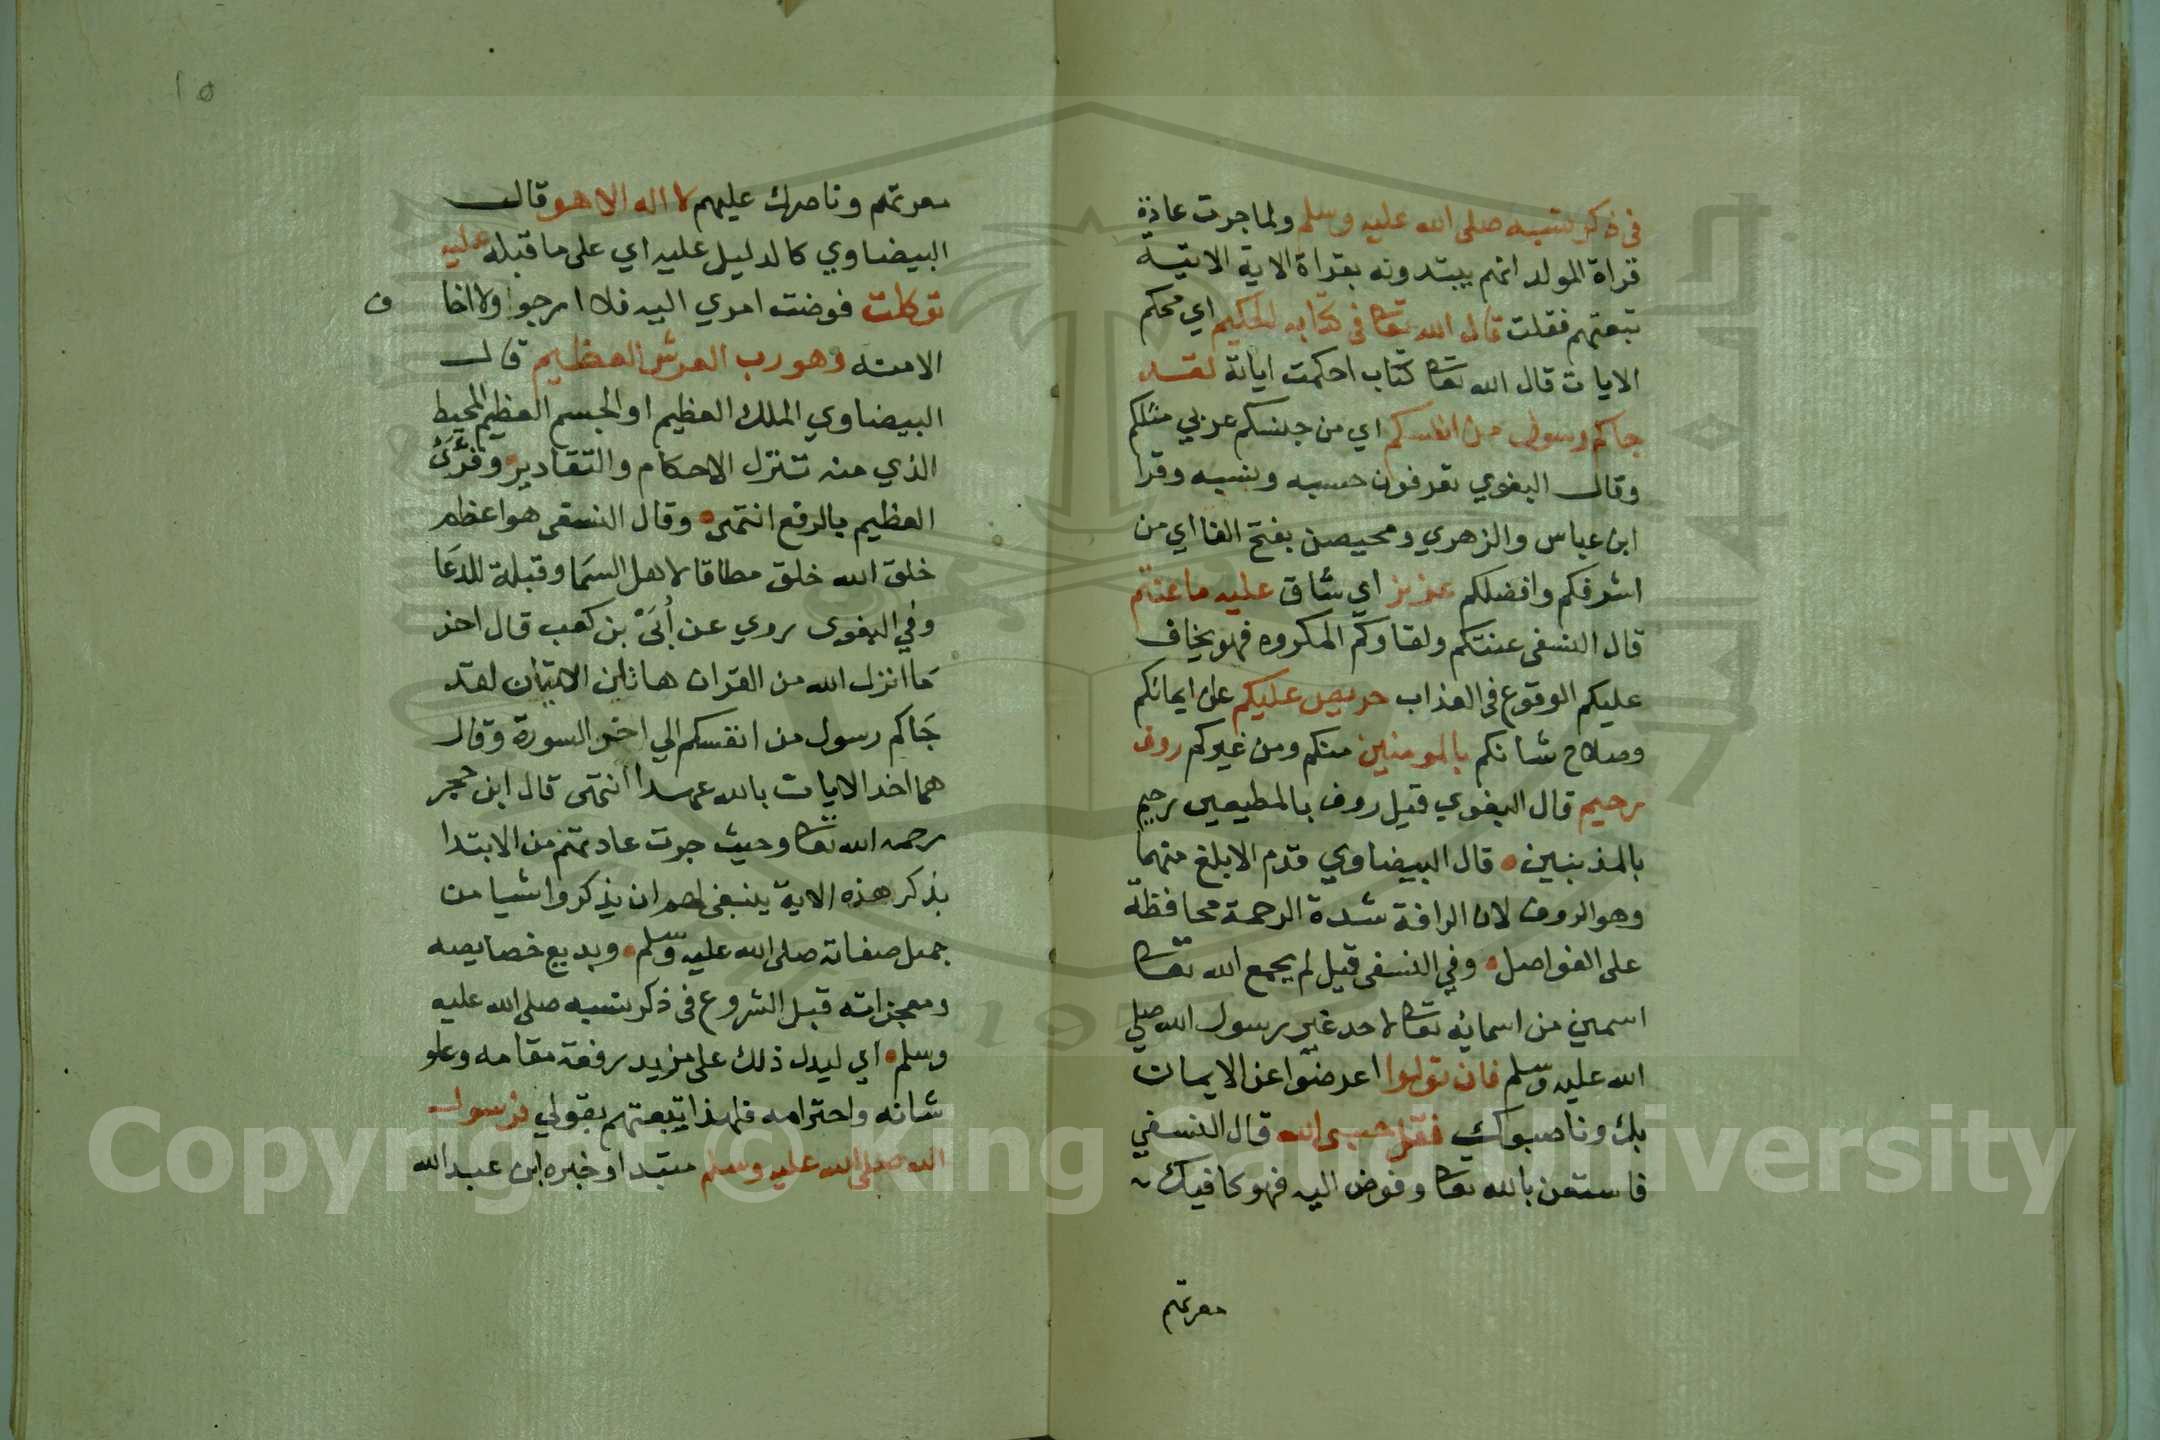 في ذكر نسبه صلى الله عليه وسلم ولما جرت عادة
قراة المولد انهم يبتدونه بقراة الاية الاتية
تبعتهم فقلت قال الله تعا في كتابه الحكيم اي محكم
الايات قال الله تعا كتاب احكمت اياتة لقد
جاكم رسول من انفسكم اي من جنسكم عربي مثلكم
وقال البغوي تعرفون حسبه ونسبه وقرا
ابن عباس والزهري ومحيصن بفتح الفا اي من
اشرفكم وافضلكم عزيز اي شاق عليه ما عنتم
قال النسفى عنتكم ولقاوكم المكروه فهو يخاف
عليكم الوقوع في العذاب حريص عليكم على ايمانكم
وصلاح شانكم بالمومنين منكم ومن غيركم روف
رحيم قال البغوي قيل روف بالمطيعين رحيم
بالمذنبين قال البيضاوي قدم الابلغ منهما
وهو الروف لان الرافة شدة الرحمة محافظة
على الفواصل وفي النسفى قيل لم يجمع الله تعا
اسمين من اسمائه تعا لاحد غير رسول الله صلي
الله عليه وسلم فان تولوا اعرضوا عن الايمان
بك وناصبوك فقل حسبي الله قال النسفي
فاستعن بالله تعا وفوض اليه فهو كافيك
معرتهم
١٥
معرتهم وناصرك عليهم لا اله الا هو قال
البيضاوي كالدليل عليه اي على ما قبله عليه
توكلت فوضت امري اليه فلا ارجوا ولا اخا
ف
الا منه وهو رب العرش العظيم قال
البيضاوي الملك العظيم او الجسم العظيم المحيط
الذي منه تنزل الاحكام والتقادير وقرئ
العظيم بالرفع انتهى وقال النسفى هو اعظم
خلق الله خلق مطافا لاهل السما وقبلة للدعا
وفي البغوى روي عن أبي بن كعب قال اخر
ما انزل الله من القران هاتان الايتان لقد
جاكم رسول من انفسكم الي اخر السورة وقال
هما احد الايات بالله عهدا انتهى قال ابن حجر
رحمه الله تعا وحيث جرت عادتهم من الابتدا
بذكر هذه الاية ينبغى لهم ان يذكروا شيا من
جميل صفاته صلى الله عليه وسلم وبديع خصايصه
ومعجزاته قبل الشروع في ذكر نسبه صلى الله عليه
وسلم اي ليدل ذلك على مزيد رفعة مقامه وعلو
شانه واحترامه فلهذا تبعتهم بقولي فرسول
الله صلى الله عليه وسلم مبتدا وخبره ابن عبد الله
Copyright © King Saud University